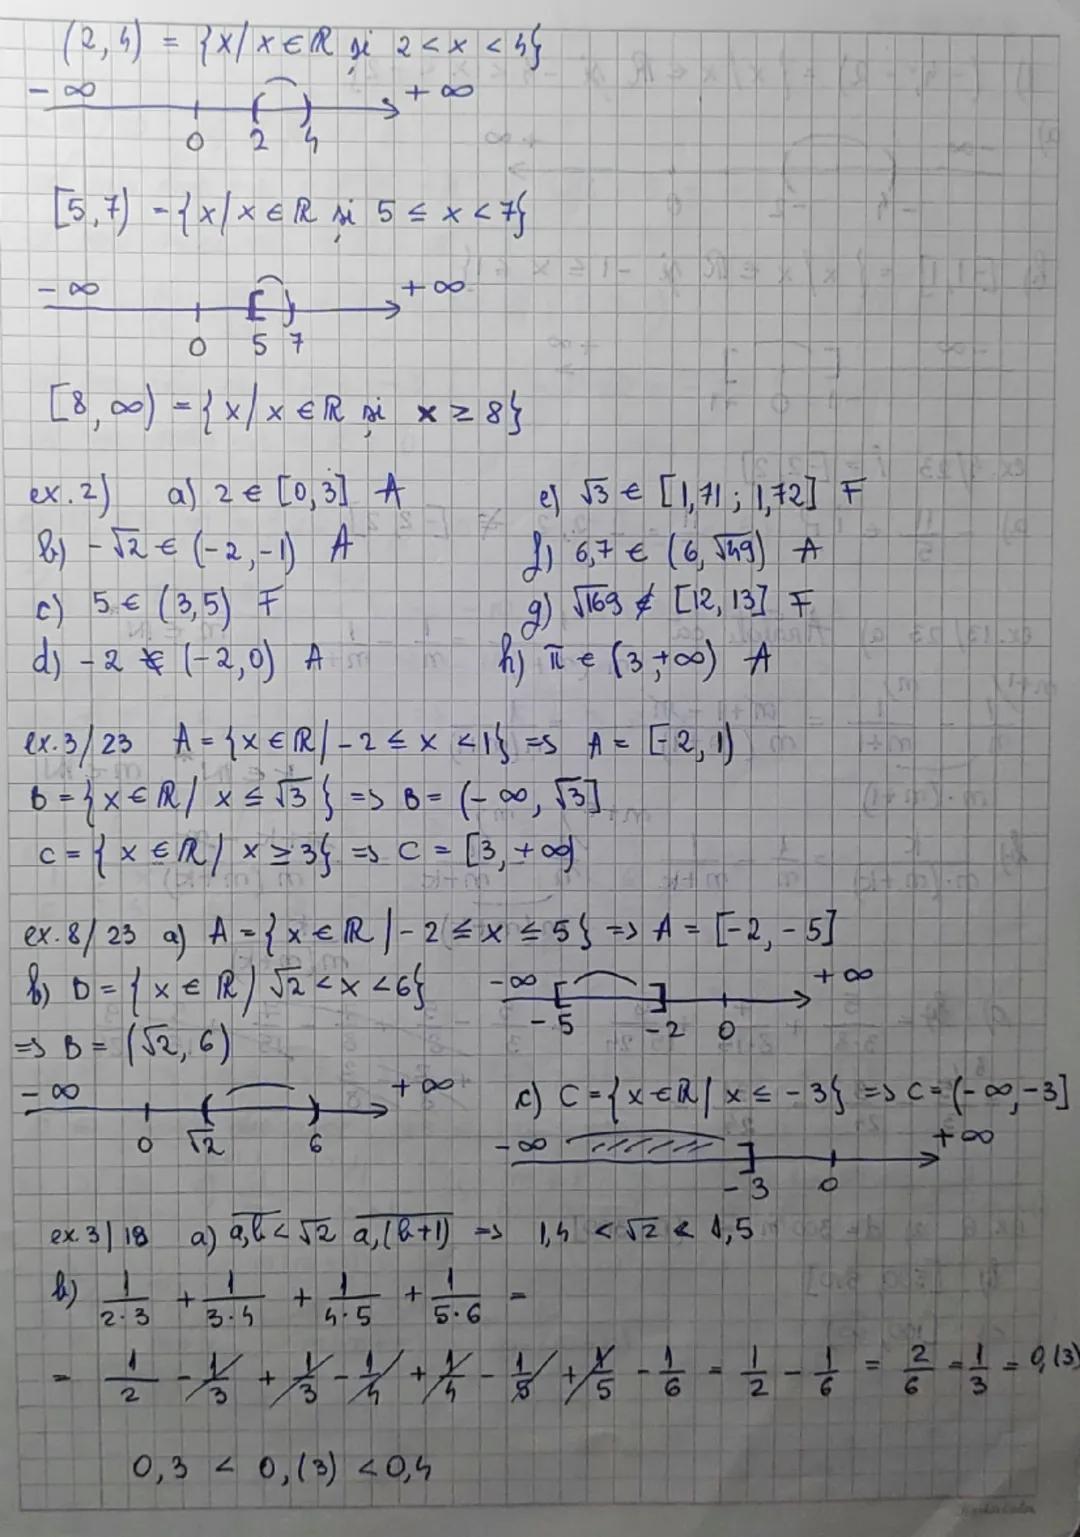 (2,4) = {x/x∈ℝ și 2<x<4}
-∞ +∞
0 2 4
[5,7) = {x/x∈ℝ și 5≤x<7}
-∞ +∞
0 5 7
[8,∞) = {x/x∈ℝ și x≥8}
ex.2) a) 2∈[0,3] A
b) -√2∈(-2,-1) A
c) 5∈(3,5) F
d) -2∉(-2,0) A
e) √3∈[1,71; 1,72] F
f) 6,7∈(6,√49) A
g) √169∉[12,13] F
h) π∈(3,+∞) A
ex.3/23 A={x∈ℝ/-2≤x<1} => A=[-2,1)
B={x∈ℝ/ x≤√3} => B=(-∞,√3]
C={x∈ℝ/ x≥3} => C=[3,+∞)
ex.8/23 a) A={x∈ℝ/-2≤x≤5} => A=[-2,-5]
-∞ +∞
-5 -2 0
b) D={x∈ℝ/ √2<x<6}
=> B=(√2,6)
-∞ +∞
0 √2 6
c) C={x∈ℝ/ x≤-3} => C=(-∞,-3]
-∞ +∞
-3 0
ex.3/18 a) a,b<√2 a,(b+1) => 1,4<√2<1,5
b) 1/2·3 + 1/3·4 + 1/4·5 + 1/5·6 =
= 1/2 - 1/3 + 1/3 - 1/4 + 1/4 - 1/5 + 1/5 - 1/6 = 1/2 - 1/6 = 2/6 = 1/3 = 0,(3)
0,3 < 0,(3) < 0,4